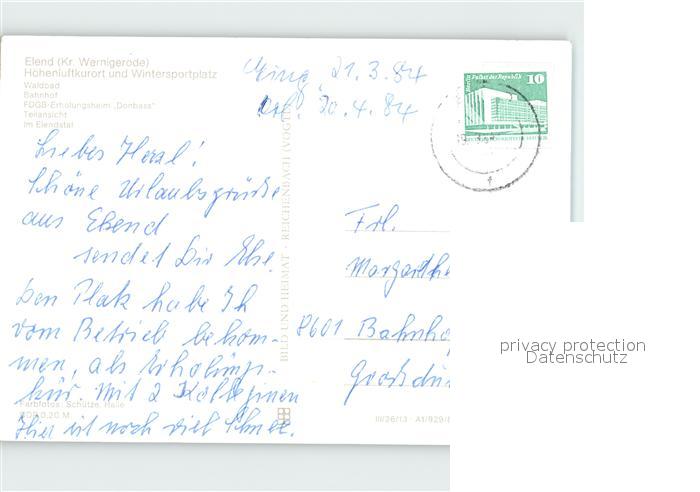 Elend (Kr. Wernigerode)
Höhenluftkurort und Wintersportplatz
Waldbad
Bahnhof
FDGB-Erholungsheim „Donbass"
Teilansicht
Im Elendstal
Eing. 21.3.84
30.4.84
Palast der Republik 10
Liebes Herzl!
Schöne Urlaubsgrüße
aus Elend
sendet Dir
Den Platz habe Ich
vom Betrieb bekom-
men, als Erholungs-
kur. Mit 2 Kolleginen
Hier ist noch viel Schnee.
Farbfotos: Schütze, Halle
DDR 0,20 M
BILD UND HEIMAT · REICHENBACH (VOGTL
Frl.
Margarethe
8601 Bahnho
Großdu
III/26/13 · A1/929/
privacy protection
Datenschutz